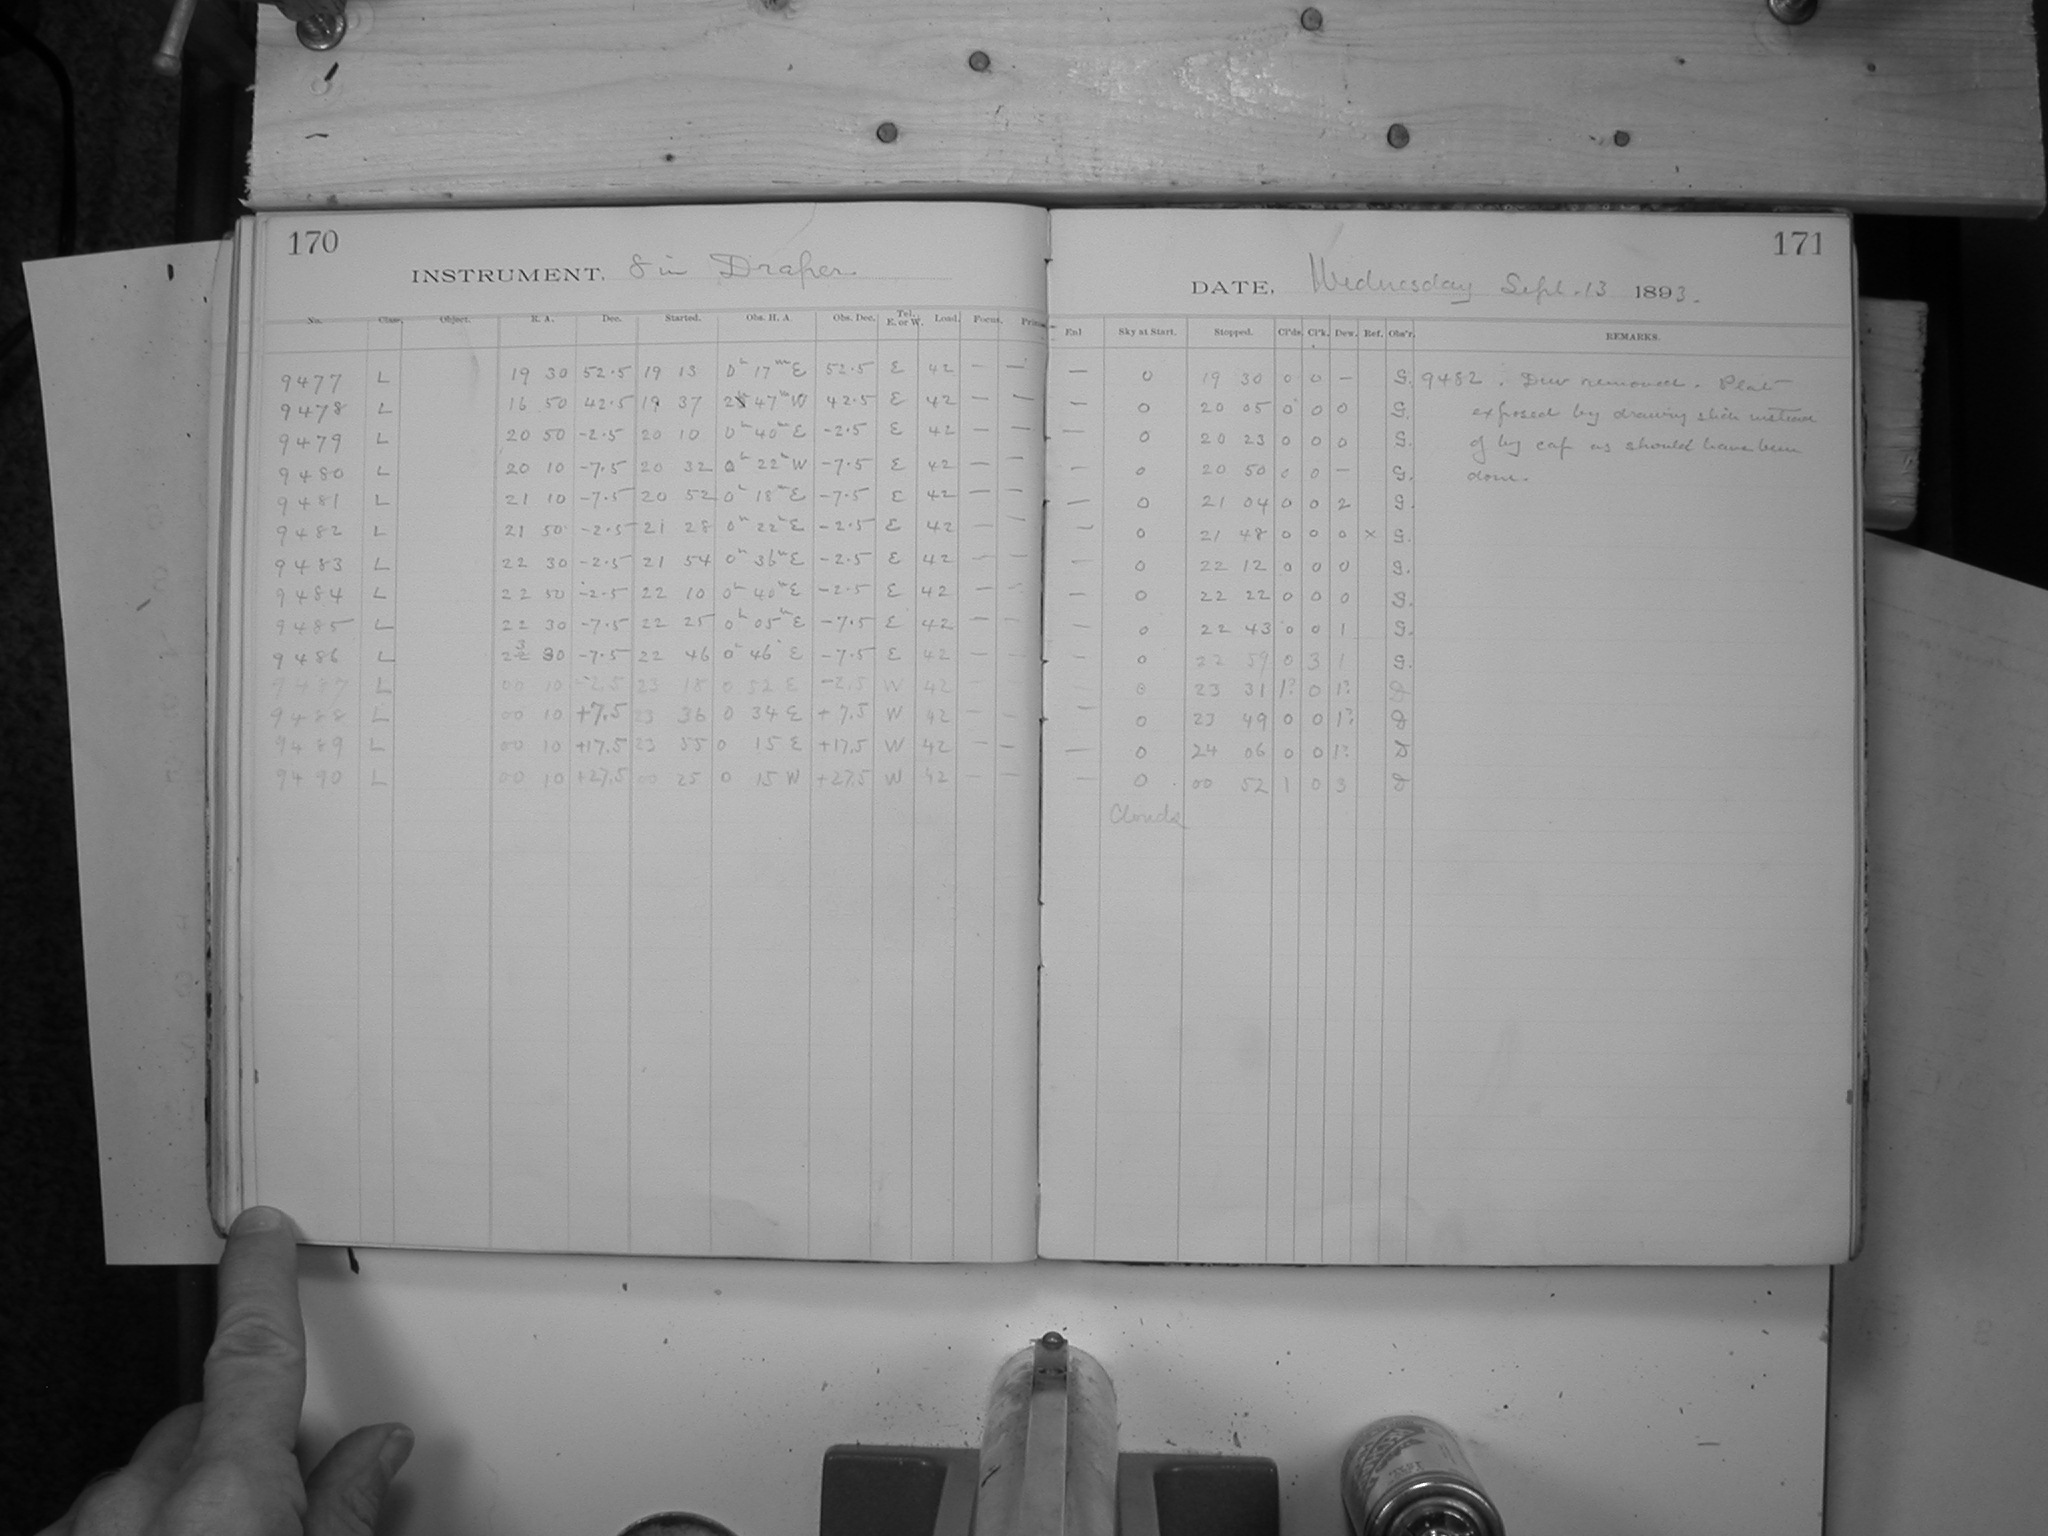 170
INSTRUMENT, 8 in Draper
No. Class. Object. R. A. Dec. Started. Obs. H. A. Obs. Dec. Tel. E. or W. Load. Focus.
9477 L 19 30 52.5 19 13 0h 17m E 52.5 E 42 — —
9478 L 16 50 42.5 19 37 2 47m W 42.5 E 42 — —
9479 L 20 50 -2.5 20 10 0h 40m E -2.5 E 42 — —
9480 L 20 10 -7.5 20 32 0h 22m W -7.5 E 42 — —
9481 L 21 10 -7.5 20 52 0h 18m E -7.5 E 42 — —
9482 L 21 50 -2.5 21 28 0h 22m E -2.5 E 42 — —
9483 L 22 30 -2.5 21 54 0h 36m E -2.5 E 42 — —
9484 L 22 50 -2.5 22 10 0h 40m E -2.5 E 42 — —
9485 L 22 30 -7.5 22 25 0h 05m E -7.5 E 42 — —
9486 L 23 30 -7.5 22 46 0h 46 E -7.5 E 42 — —
9487 L 00 10 -2.5 23 18 0 52 E -2.5 W 42
9488 L 00 10 +7.5 23 36 0 34 E +7.5 W 42 — —
9489 L 00 10 +17.5 23 55 0 15 E +17.5 W 42 — —
9490 L 00 10 +27.5 00 25 0 15 W +27.5 W 42 — —
171
DATE, Wednesday Sept. 13 1893.
Enl Sky at Start. Stopped. Cl'ds Cl'k. Dew. Ref. Obs'r. REMARKS.
— 0 19 30 0 0 — G. 9482. Dew removed. Plate
— 0 20 05 0 0 0 G. exposed by drawing slide instead
— 0 20 23 0 0 0 G. of by cap as should have been
— 0 20 50 0 0 — G. done.
— 0 21 04 0 0 2 G.
— 0 21 48 0 0 0 x G.
— 0 22 12 0 0 0 G.
— 0 22 22 0 0 0 G.
— 0 22 43 0 0 1 G.
— 0 22 59 0 3 1 G.
0 23 31 1? 0 1? D
— 0 23 49 0 0 1? D
— 0 24 06 0 0 1? D
— 0 00 52 1 0 3 D
Clouds